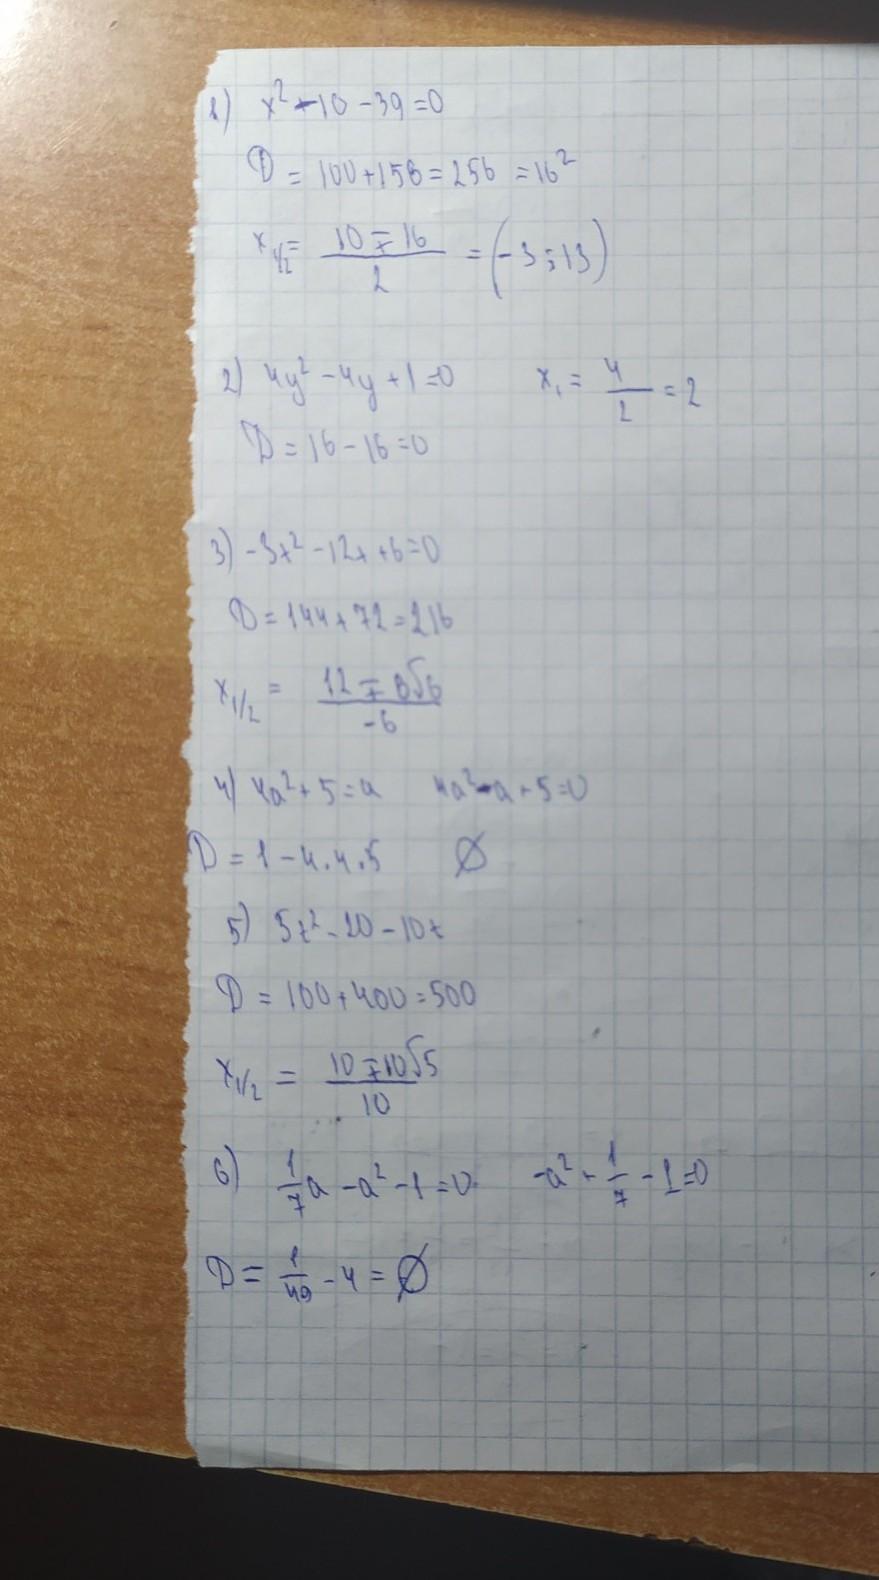 1) x² - 10 - 39 = 0
D = 100 + 156 = 256 = 16²
x₁/₂ = (10 ∓ 16)/2 = (-3; 13)
2) 4y² - 4y + 1 = 0 x₁ = 4/2 = 2
D = 16 - 16 = 0
3) -3x² - 12x + 6 = 0
D = 144 + 72 = 216
x₁/₂ = (12 ∓ 6√6)/-6
4) 4a² + 5 = a 4a² - a + 5 = 0
D = 1 - 4.4.5 ∅
5) 5x² - 20 - 10x
D = 100 + 400 = 500
x₁/₂ = (10 ∓ 10√5)/10
6) 1/7 a - a² - 1 = 0 -a² + 1/7 - 1 = 0
D = 1/49 - 4 = ∅